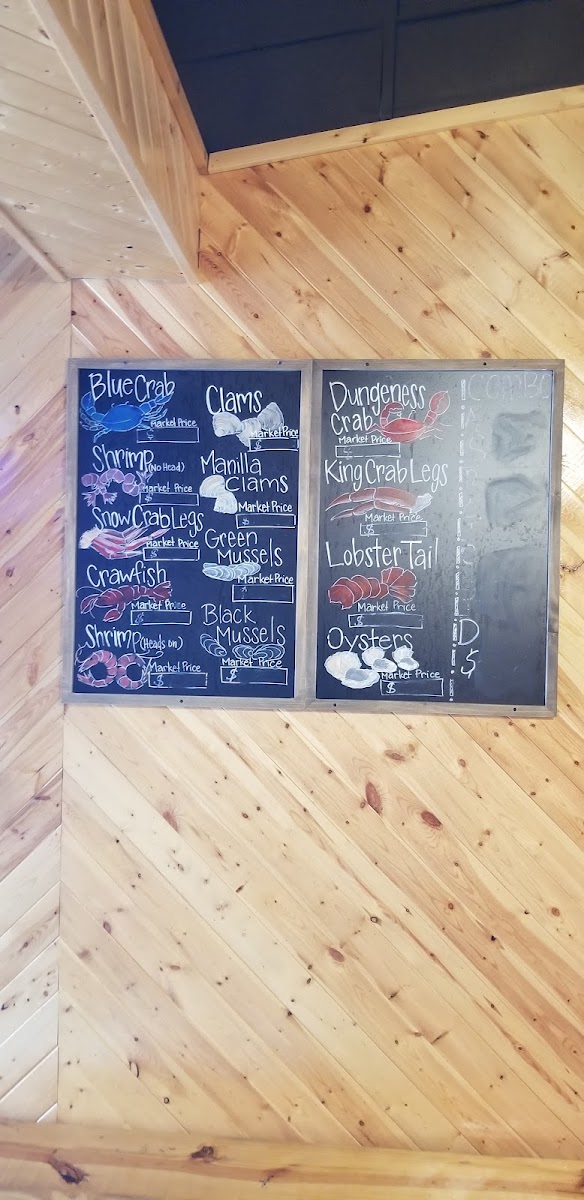 Blue Crab
Market Price
$
Shrimp (No Head)
Market Price
$
Snow Crab Legs
Market Price
$
Crawfish
Market Price
$
Shrimp (Heads on)
Market Price
$
Clams
Market Price
$
Manilla
Clams
Market Price
$
Green
Mussels
Market Price
$
Black
Mussels
Market Price
$
Dungeness
Crab
Market Price
$
King Crab Legs
Market Price
$
Lobster Tail
Market Price
$
Oysters
Market Price
$
COMBO
D
$